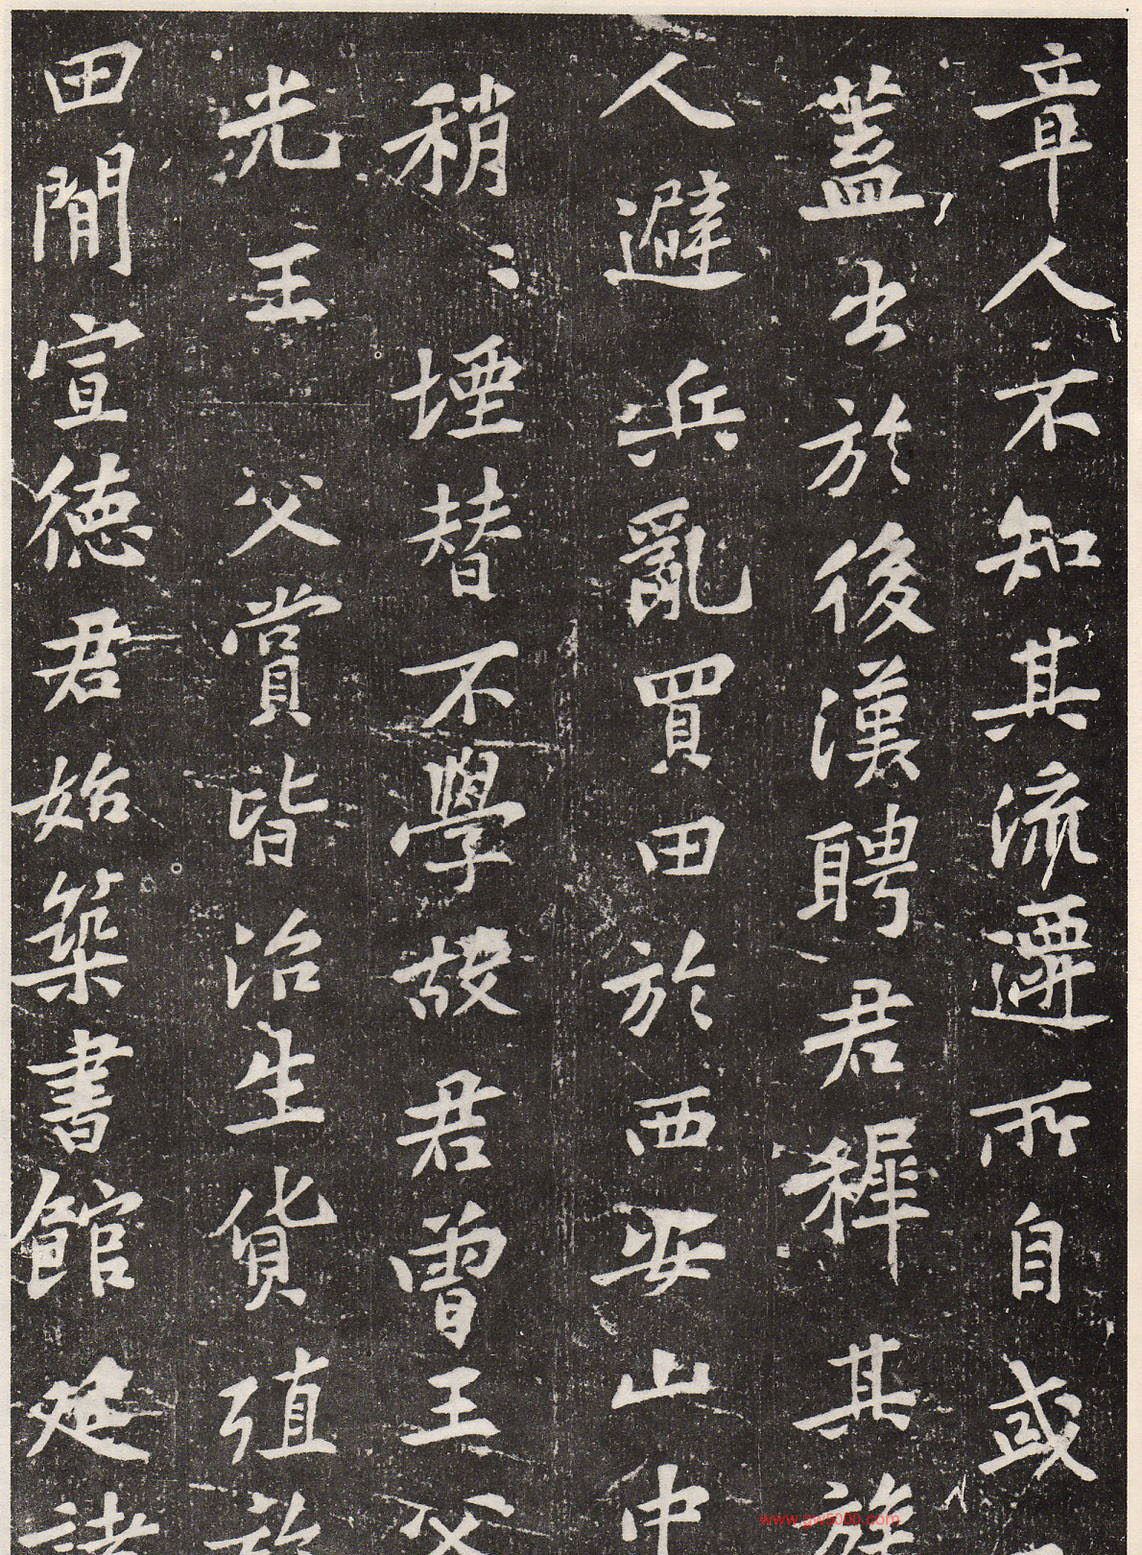 章人不知其流遷所自或
蓋出於後漢聘君穉其族
人避兵亂買田於西安山中
稍〻堙替不學故君曾王父
光王父賞皆治生貨殖於
田閒宣德君始築書館延諸
www.gw8000.com